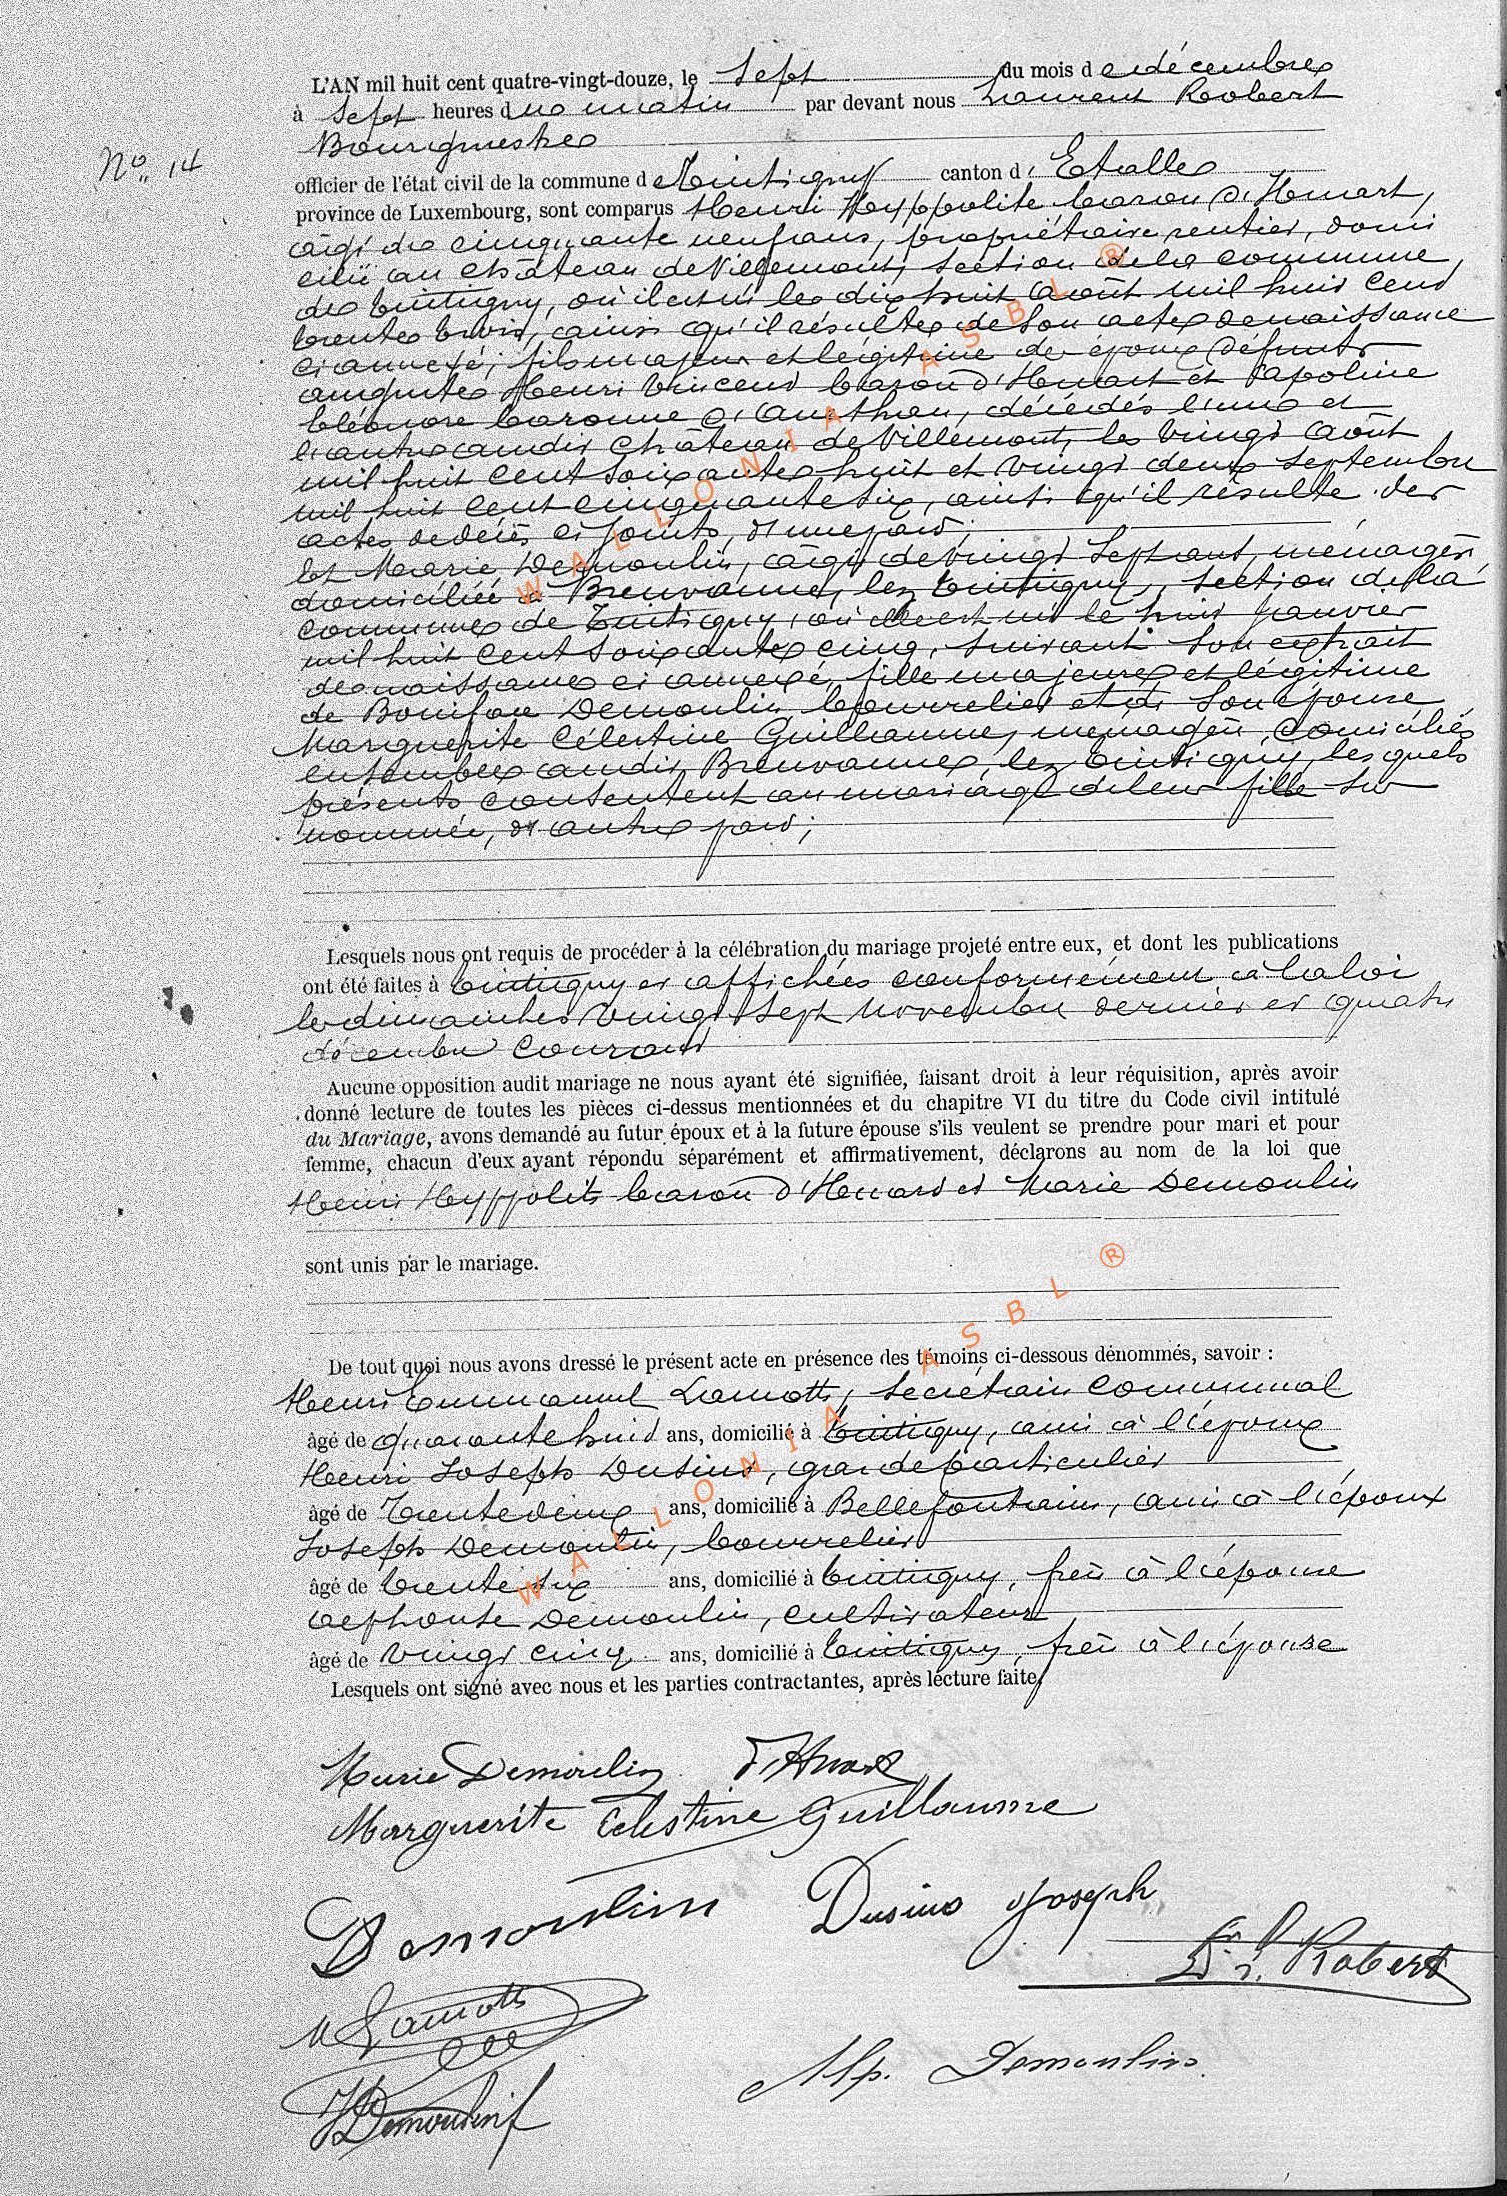 L'AN mil huit cent quatre-vingt-douze, le Sept du mois de décembre
à Sept heures du matin par devant nous Laurent Robert
Bourgmestre
No. 14
officier de l'état civil de la commune de Tintigny canton d'Etalle
province de Luxembourg, sont comparus Henri Hyppolite baron d'Huart,
âgé de cinquante neuf ans, propriétaire rentier, domi
cilié au château de Villemont, section de la commune
de Tintigny, où il est né le dix huit août mil huit cent
trente trois, ainsi qu'il résulte de son acte de naissance
ci annexé; fils majeur et légitime de époux défunts
auguste Henri Vincent baron d'Huart et apoline
éléonore baronne d'anethan, décédés l'un et
l'autre audit château de Villemont, les vingt août
mil huit cent soixante huit et vingt deux septembre
mil huit cent cinquante six, ainsi qu'il résulte des
actes de décès ci joints, d'une part;
Et Marie Demoulin, âgée de vingt Sept ans, ménagère
domiciliée à Breuvanne, lez Tintigny, section de la
commune de Tintigny, où elle est née le huit Janvier
mil huit cent soixante cinq, suivant son extrait
de naissance ci annexé, fille majeure et légitime
de Boniface Demoulin, bourrelier et de son épouse
Marguerite Célestine Guillaume, ménagère, domiciliés
ensembles audit Breuvanne, lez Tintigny, lesquels
présents consentent au mariage de leur fille sus
nommée, d'autre part;
Lesquels nous ont requis de procéder à la célébration du mariage projeté entre eux, et dont les publications
ont été faites à Tintigny et affichées conformément à la loi
les dimanches vingt Sept novembre dernier et quatre
décembre courant
Aucune opposition audit mariage ne nous ayant été signifiée, faisant droit à leur réquisition, après avoir
donné lecture de toutes les pièces ci-dessus mentionnées et du chapitre VI du titre du Code civil intitulé
du Mariage, avons demandé au futur époux et à la future épouse s'ils veulent se prendre pour mari et pour
femme, chacun d'eux ayant répondu séparément et affirmativement, déclarons au nom de la loi que
Henri Hyppolite baron d'Huart et Marie Demoulin
sont unis par le mariage.
De tout quoi nous avons dressé le présent acte en présence des témoins ci-dessous dénommés, savoir :
Henri Emmanuel Lamotte, Secrétaire communal
âgé de quarante huit ans, domicilié à Tintigny, ami à l'époux
Henri Joseph Dusius, garde particulier
âgé de Trente deux ans, domicilié à Bellefontaine, ami à l'époux
Joseph Demoulin, bourrelier
âgé de trente six ans, domicilié à Tintigny, frère à l'épouse
alphonse Demoulin, cultivateur
âgé de vingt cinq ans, domicilié à Tintigny, frère à l'épouse
Lesquels ont signé avec nous et les parties contractantes, après lecture faite.
Marie Demoulin d'Huart
Marguerite Célestine Guillaume
Demoulin Dusius Joseph
Dr L. Robert
Lamotte
Alp. Demoulin
J Demoulin
WALLONIA ASBL ®
WALLONIA ASBL ®